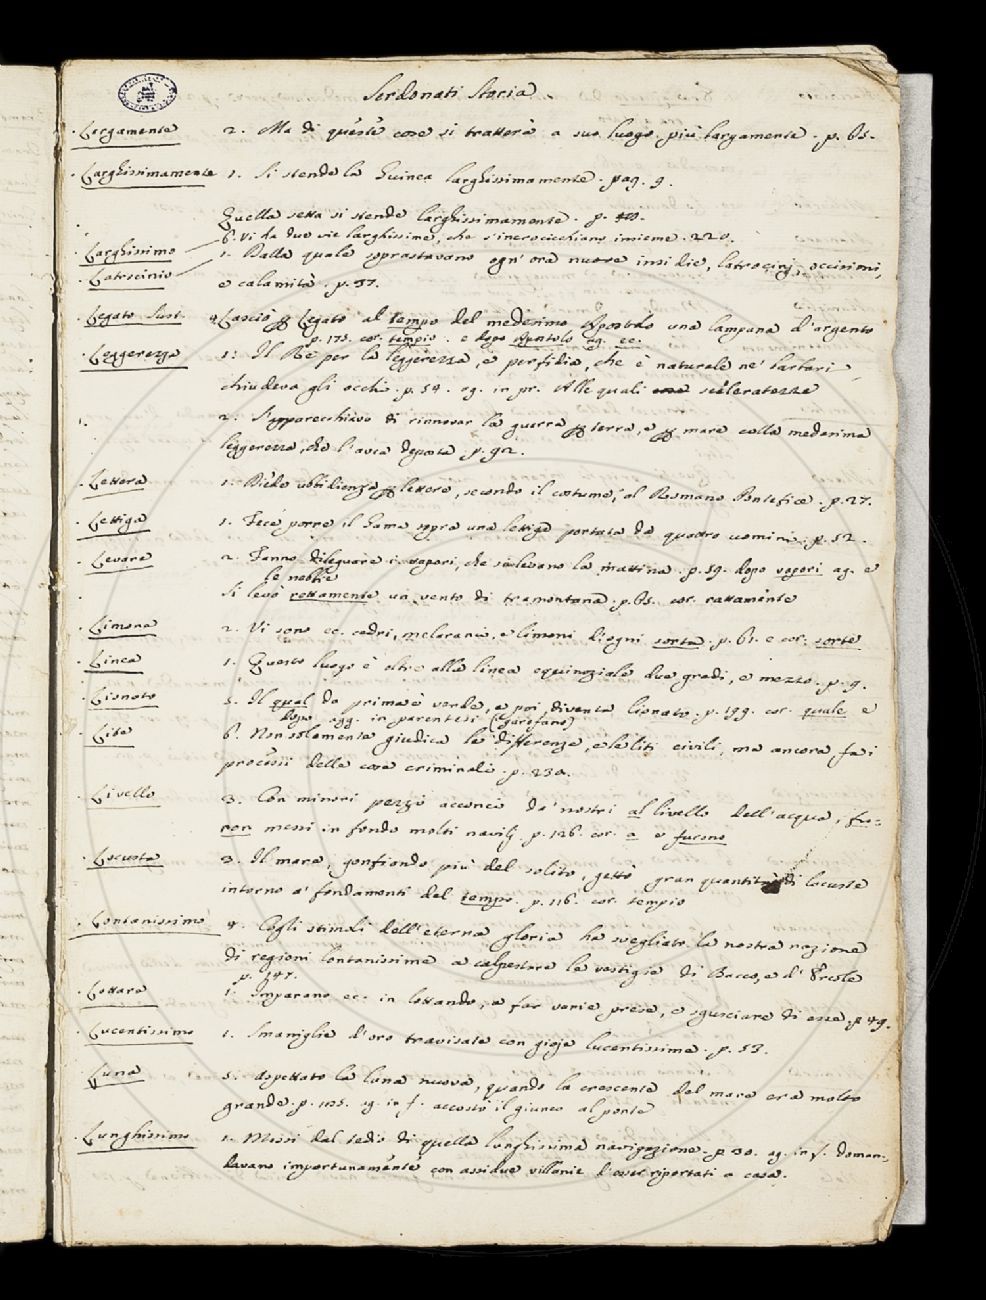 Serdonati Storia
Largamente 2. Ma di queste cose si tratterà a suo luogo più largamente. p. 65.
Larghissimamente 1. Si stende la Guinea larghissimamente. pag. 9.
Quella setta si stende larghissimamente. p. 40.
Larghissimo 6. Vi ha due vie larghissime, che s'incrocicchiano insieme. 220.
Latrocinio 1. Dalla quale soprastavano ogn'ora nuove insidie, latrocinj, occisioni,
e calamità. p. 37.
Legato Sust. 4. Lasciò p Legato al tempo del medesimo Apostolo una lampana d'argento
p. 173. cor. tempio. e dopo Apostolo ag. ec.
Leggerezza 1. Il Re per la leggerezza, e perfidia, che è naturale ne' Tartari
chiudeva gli occhi. p. 54. ag. in pr. Alle quali scelleratezze
2. S'apparecchiavo di rinnovar la guerra p terra, e p mare colla medesima
leggerezza, che l'avea deposta. p. 92.
Lettera 1. Diede ubbidienza p lettere, secondo il costume, al Romano Pontefice. p. 27.
Lettiga 1. Fece porre il Gama sopra una lettiga portata da quattro uomini. p. 52.
Levare 2. Fanno dileguare i vapori, che si levano la mattina. p. 59. dopo vapori ag. e
le nebbie
Si levò rettamente un vento di tramontana. p. 65. cor. rattamente
Limone 2. Vi sono ec. cedri, melarance, e limoni d'ogni sorta. p. 61. e cor. sorte
Linea 1. Questo luogo è oltre alla linea equinoziale due gradi, e mezzo. p. 9.
Lionato 5. Il qual da prima è verde, e poi diventa lionato. p. 199. cor. quale e
dopo agg. in parentesi (il garofano)
Lite 6. Non solamente giudica le differenze, e le liti civili, ma ancora fa i
processi delle cose criminali. p. 230.
Livello 3. Con minori pezzi acconci da' nostri al livello dell'acqua, fu=
ron messi in fondo molti navilj. p. 126. cor. a e furono
Locusta 3. Il mare, gonfiando più del solito, gettò gran quantità di locuste
intorno a' fondamenti del tempo. p. 116. cor. tempio
Lontanissimo 4. Cogli stimoli dell'eterna gloria ha svegliato la nostra nazione
di regioni lontanissime a calpestare le vestigie di Bacco, e d'Ercole
p. 147.
Lottare 1. Imparano ec. in lottando, a far varie prese, e sgusciare di esse. p. 49.
Lucentissimo 1. Smaniglie d'oro travisate con gioje lucentissime. p. 53.
Luna 3. Aspettato la luna nuova, quando la crescente del mare era molto
grande. p. 105. ag. in f. accostò il giunco al ponte
Lunghissimo 1. Mossi dal tedio di quella lunghissima navigazione. p. 30. ag. in f. doman=
davano importunamente con assidue villanie d'esser riportati a casa.